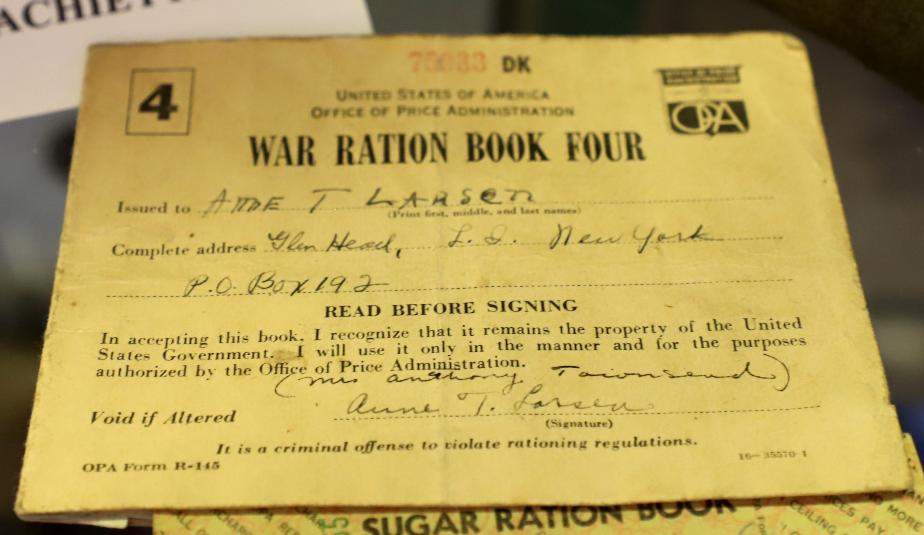 ACHIET
75633 DK
4
UNITED STATES OF AMERICA
OFFICE OF PRICE ADMINISTRATION
OFFICE OF PRICE ADMINISTRATION
OPA
WAR RATION BOOK FOUR
Issued to Anne T Larsen
(Print first, middle, and last names)
Complete address Glen Head, L.I. New York
P.O. Box 192
READ BEFORE SIGNING
In accepting this book, I recognize that it remains the property of the United
States Government. I will use it only in the manner and for the purposes
authorized by the Office of Price Administration.
(Mrs Anthony Townsend)
Void if Altered Anne T. Larsen
(Signature)
It is a criminal offense to violate rationing regulations.
OPA Form R-145
16—35570-1
SUGAR RATION BOOK
CEILING
PAY
MORE